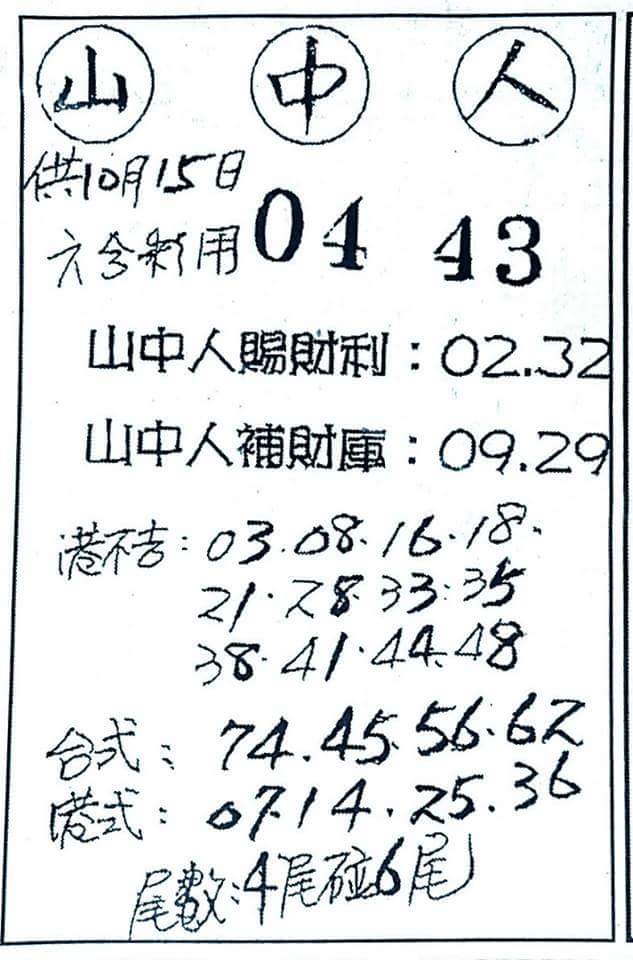 山 中 人
供10月15日
六合彩用 04 43
山中人賜財利：02.32
山中人補財庫：09.29
港不吉：03.08.16.18.
21.28.33.35
38.41.44.48
台式：74.45.56.62
港式：07.14.25.36
尾數：4尾碰6尾